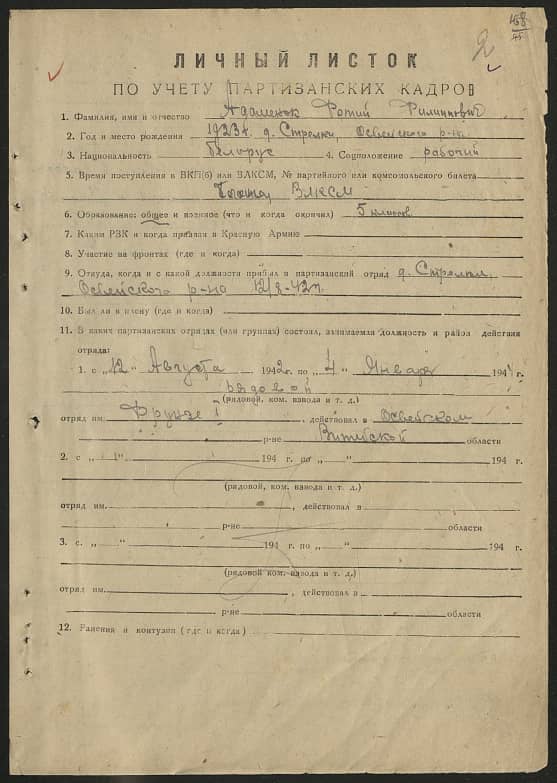 ЛИЧНЫЙ ЛИСТОК
ПО УЧЕТУ ПАРТИЗАНСКИХ КАДРОВ
1. Фамилия, имя и отчество Адаменок Фотий Филиппович
2. Год и место рождения 1923 г. д. Стрелки, Освейского р-на
3. Национальность Белорус 4. Соцположение рабочий
5. Время поступления в ВКП(б) или ВЛКСМ, № партийного или комсомольского билета
ВЛКСМ
6. Образование: общее и военное (что и когда окончил) 5 классов
7. Каким РВК и когда призван в Красную Армию
8. Участие на фронтах (где и когда)
9. Откуда, когда и с какой должности прибыл в партизанский отряд д. Стрелки,
Освейского р-на 12/8-42 г.
10. Был ли в плену (где и когда)
11. В каких партизанских отрядах (или группах) состоял, занимаемая должность и район действия
отряда:
1. с „12" Августа 1942 г. по „4" Января 194 г.
рядовой
(рядовой, ком. взвода и т. д.)
отряд им. Фрунзе, действовал в Освейском
р-не Витебской области
2. с „ " 194 г. по „ " 194 г.
(рядовой, ком. взвода и т. д.)
отряд им. , действовал в
р-не области
3. с „ " 194 г. по „ " 194 г.
(рядовой ком. взвода и т. д.)
отряд им. , действовал в
р-не области
12. Ранения и контузии (где и когда)